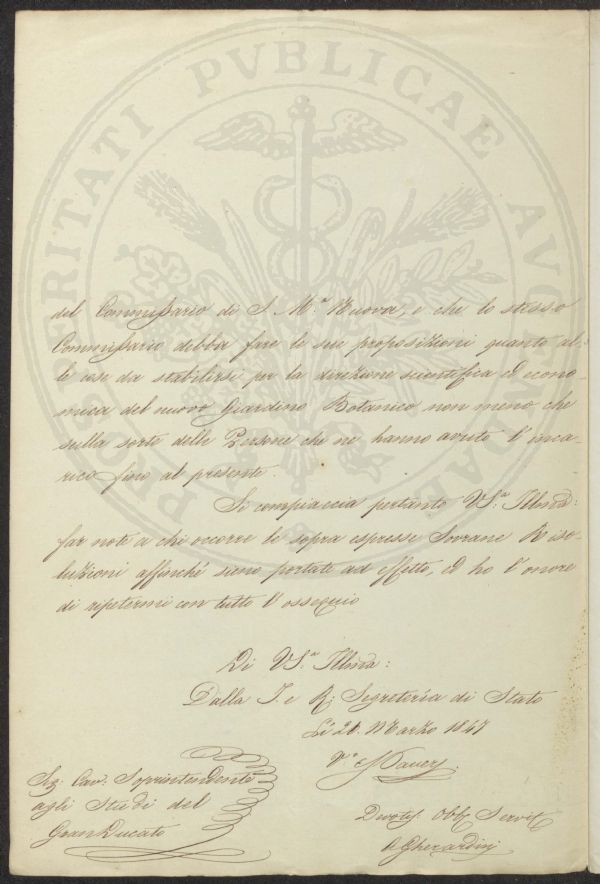 PROSPERITATI PVBLICAE AVGENDAE
del Commissario di S. M.ª Nuova, e che lo stesso
Commissario debba fare le sue proposizioni quanto al-
le cose da stabilirsi per la direzione scientifica ed econo-
mica del nuovo Giardino Botanico non meno che
sulla sorte delle Persone che ne hanno avuto l'inca-
rico fino al presente.
Si compiaccia pertanto VS.ª Illma:
far note a chi occorre le sopra espresse Sovrane Riso-
luzioni affinché siano portate ad effetto, ed ho l'onore
di ripetermi con tutto l'ossequio
Di VS.ª Illma:
Dalla I. e R. Segreteria di Stato
Li 21. Marzo 1847
V.º Pauer
Sig. Cav. Soprintendente
agli Studi del
GranDucato
Devotis. Obb. Servit
A Gherardini